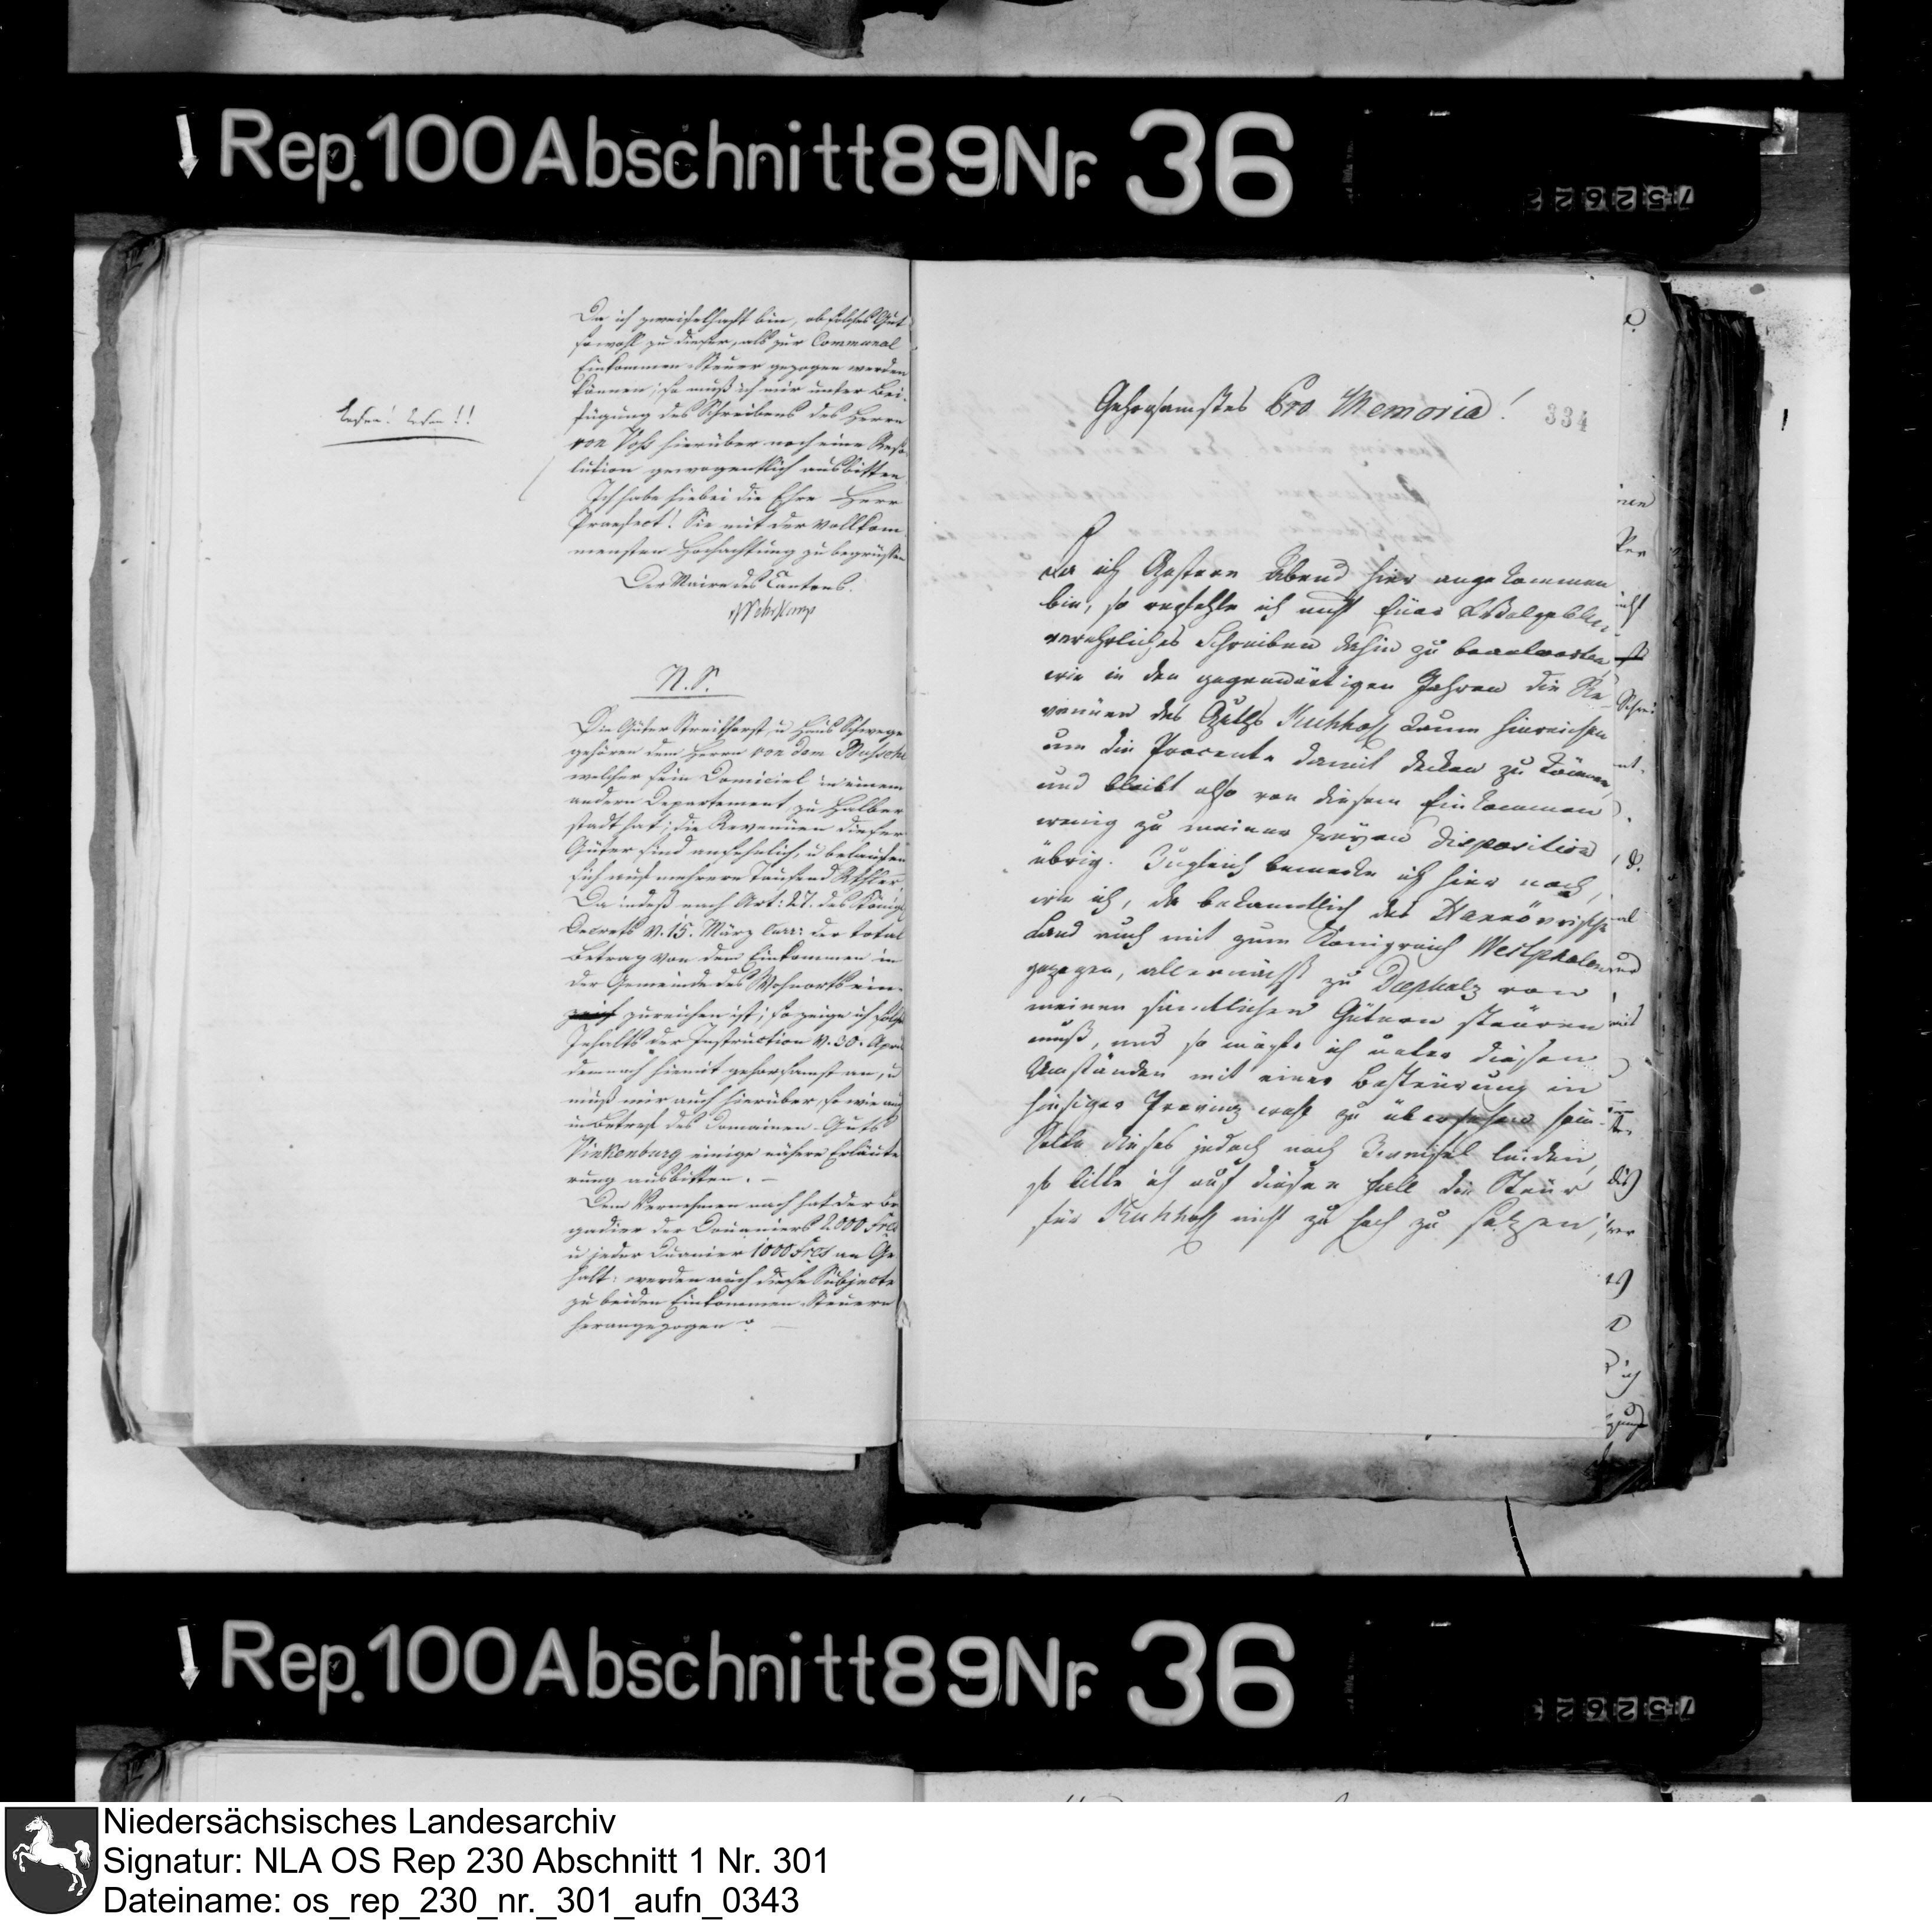 Rep. 100 Abschnitt 89 Nr. 36
752622
Da ich zweifelhaft bin, ob solches Gut
sowohl zu dieser, als zur Communal
Einkommen Steuer gezogen werden
können; so muß ich mir unter Bei-
fügung des Schreibens des Herrn
von Voß hierüber noch eine Reso-
lution gewogentlich ausbitten.
Ich habe hiebei die Ehre Herr
Praefect! Sie mit der vollkom-
mensten Hochachtung zu begrüssen
Der Maire des Cantons.
N. S.
Die Güter Streithorst, u Haus Schwege
gehören dem Herrn von dem Bussche
welcher sein Domiciel in einem
andern Departement, zu Halber
stadt hat; die Revenüen dieser
Güter sind ansehnlich, u belaufen
sich auf mehrere Tausend Rthler.
Da indeß nach Art: 27. des Königl
Decrets v. 15. März curr: der total
Betrag von dem Einkommen in
der Gemeinde des Wohnorts ein-
zureichen ist; so zeige ich solches
Inhalts der Instruction v. 30. April
demnach hiemit gehorsamst an, u
muß mir auch hierüber so wie auch
in Betref des Domainen-Guts
Vinkenburg einige nähere Erläute
rung ausbitten. —
Dem Vernehmen nach hat der Bri
gadier der Douaniers 2000 Frcs
u jeder Duanier 1000 Frcs an Ge
halt: werden auch diese Subjecte
zu beiden Einkommen Steuern
herangezogen? —
Gehorsamstes Pro Memoria!
334
Da ich Gestern Abend hier angekommen
bin, so verfehle ich nicht Euer Wolgebohren
verehrliches Schreiben dahin zu beantworten
wie in den gegenwärtigen Jahren die Re-
venüen des Guths Kuhhof kaum hinreichen
um die Procente damit decken zu können,
und bleibt also von diesem Einkommen
wenig zu meiner freyen disposition
übrig. Zugleich bemerke ich hier noch,
wie ich, da bekanntlich das Hannövrische
Land auch mit zum Königreich Westphalen
gezogen, allernächst zu Diepholz von
meinen sämtlichen Gütern steuren
muß, und so mögte ich unter diesen
Umständen mit einer Besteurung in
hiesiger Provinz wohl zu übersehen sein.
Solte dieses jedoch noch Zweifel leiden,
so bitte ich auf diesen Fall die Steur
für Kuhhof nicht zu hoch zu setzen,
Rep. 100 Abschnitt 89 Nr. 36
75262
Niedersächsisches Landesarchiv
Signatur: NLA OS Rep 230 Abschnitt 1 Nr. 301
Dateiname: os_rep_230_nr._301_aufn_0343